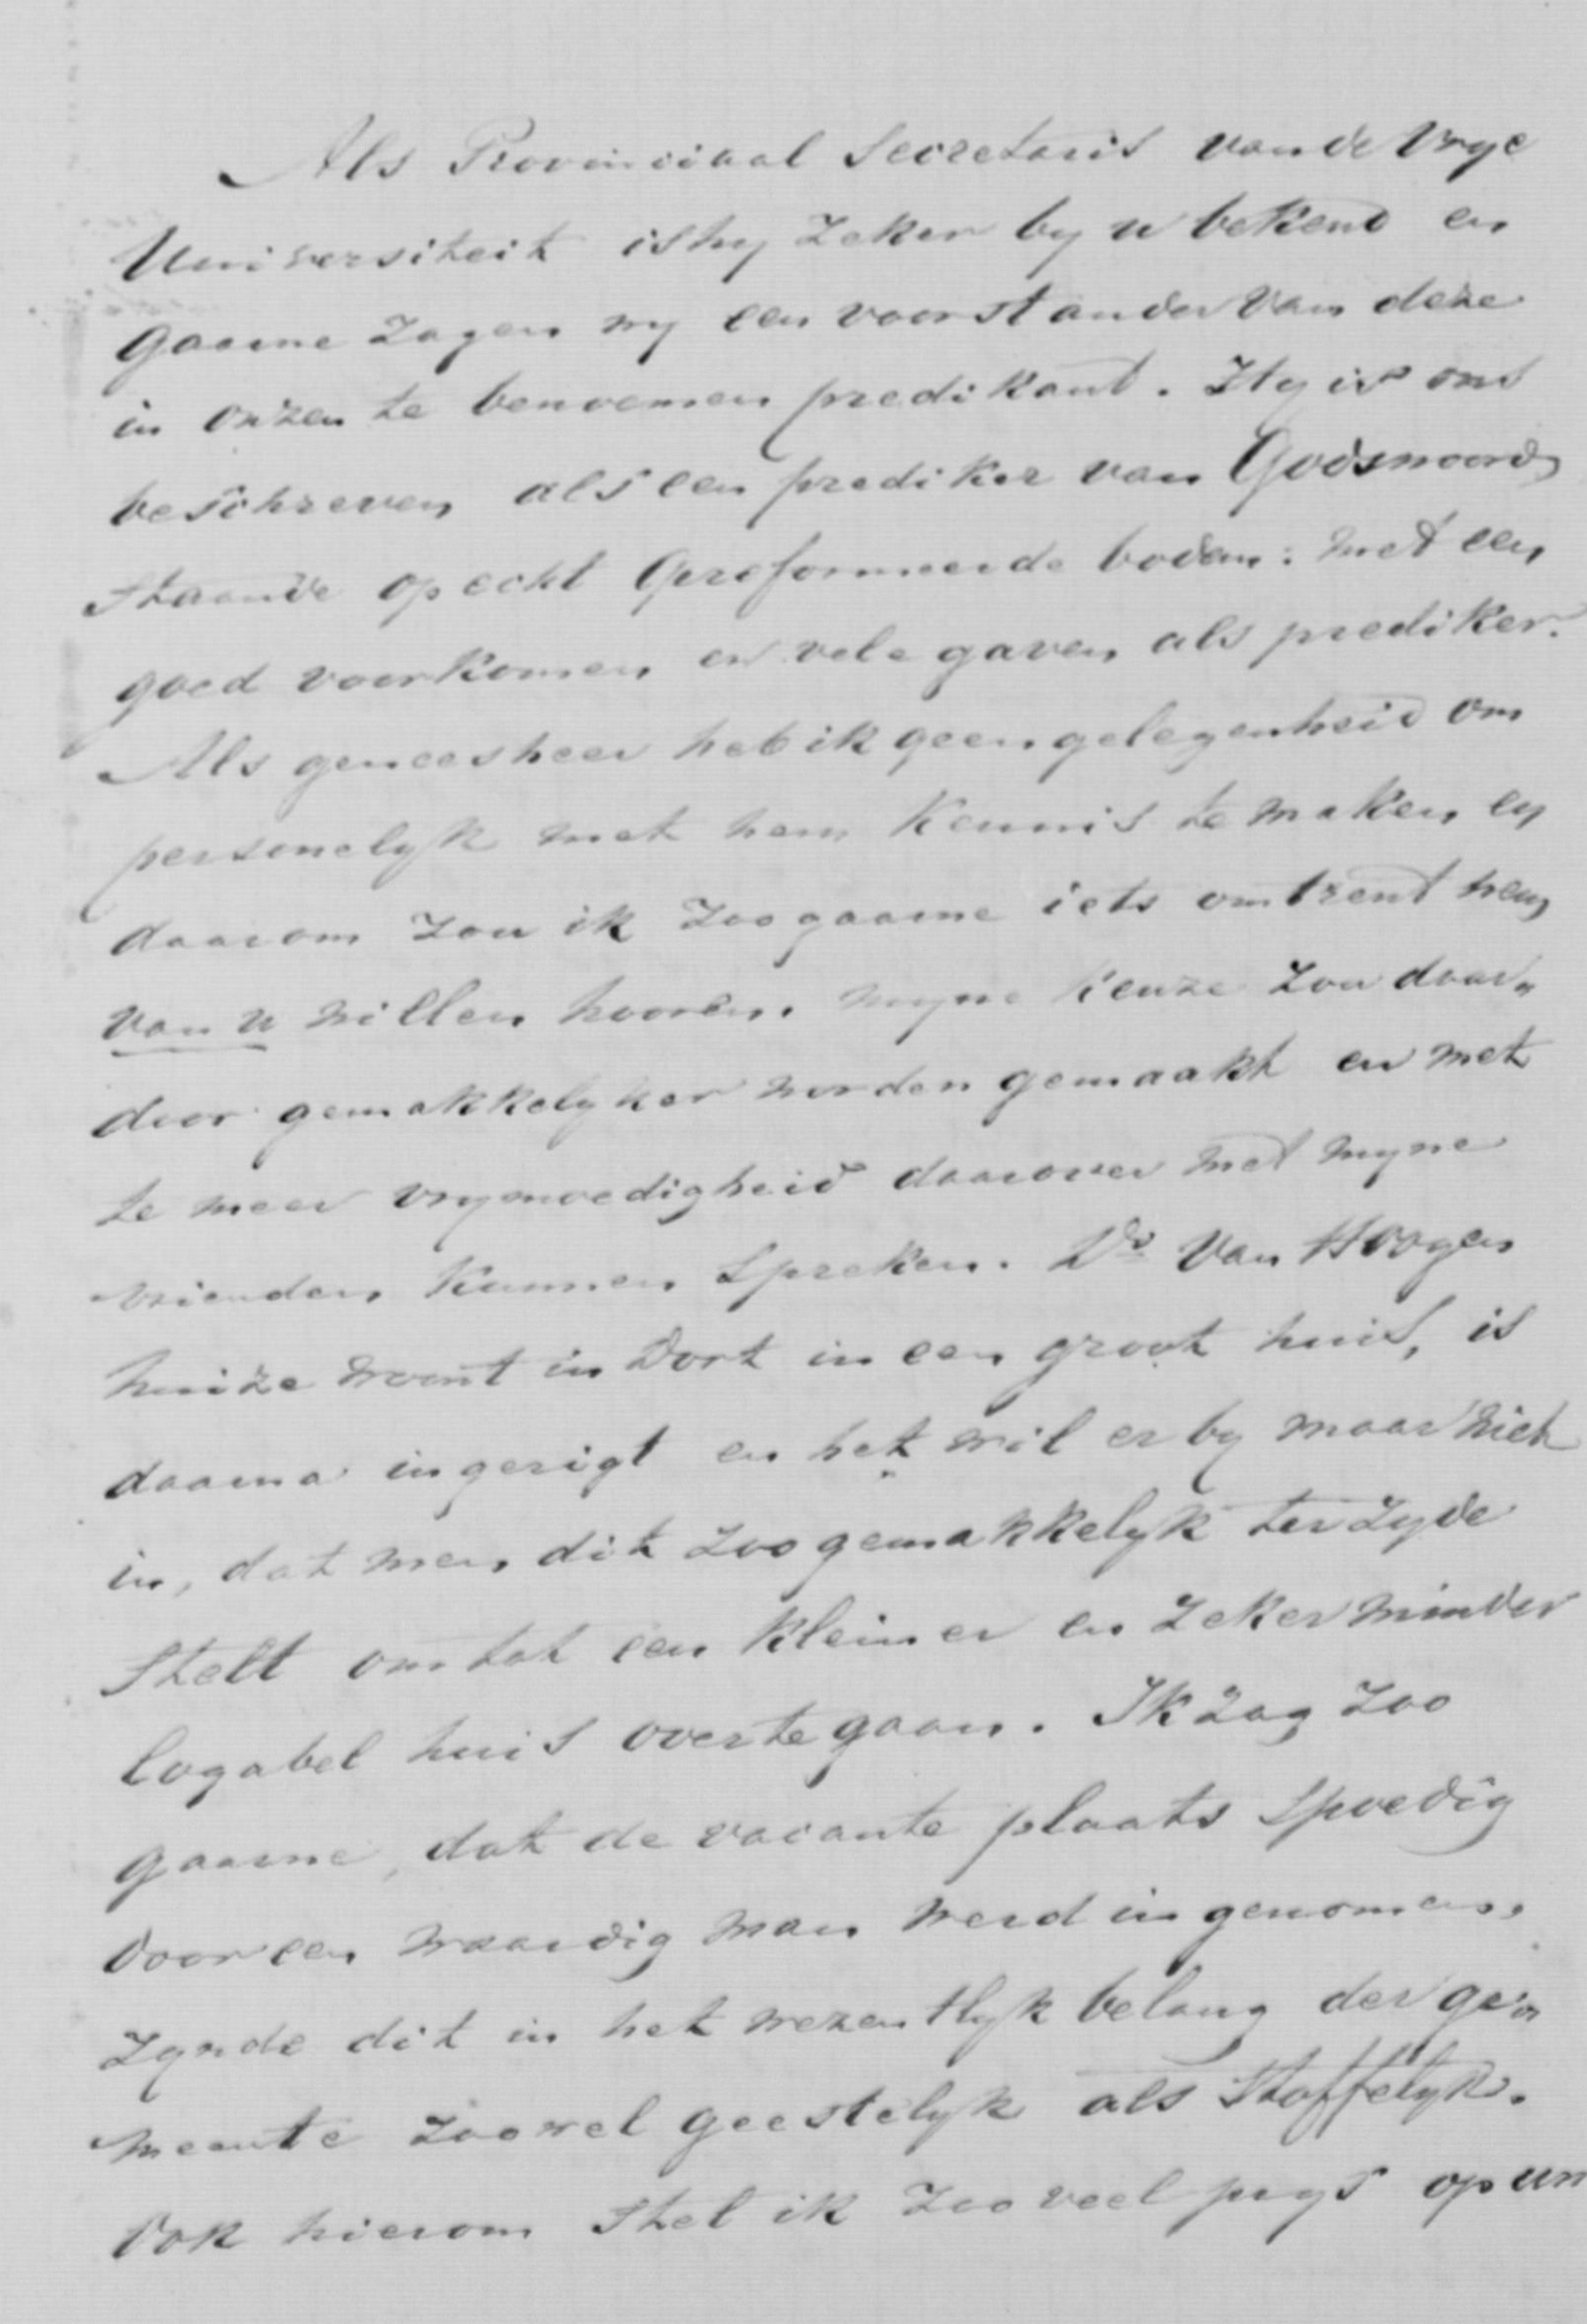 Als Provinciaal Secretaris van de Vrye
Universiteit is hy zeker by u bekend en
gaarne zagen wy een voorstander van deze
in onzen te benoemen predikant. Hy is ons
beschreven als een prediker van Godswoord
staande op echt Gereformeerde bodem: met een
goed voorkomen en vele gaven als prediker.
Als geneesheer heb ik geen gelegenheid om
personelyk met hem kennis te maken en
daarom zou ik zoo gaarne iets omtrent hem
van u willen hooren. myne keuze zou daar„
door gemakkelyker worden gemaakt en met
te meer vrymoedigheid daarover met myne
vrienden kunnen spreken. Ds Van Hoogen
huize woont in Dort in een groot huis, is
daarna ingerigt en het wil er by maar niet
in, dat men dit zoo gemakkelyk ter zyde
stelt om tot een kleiner en zeker minder
logabel huis over te gaan. Ik zag zoo
gaarne, dat de vacante plaats spoedig
door een waardig man werd ingenomen,
zynde dit in het wezentlyk belang der ge„
meente zoowel geestelyk als stoffelyk.
Ook hierom stel ik zooveel prys op uw